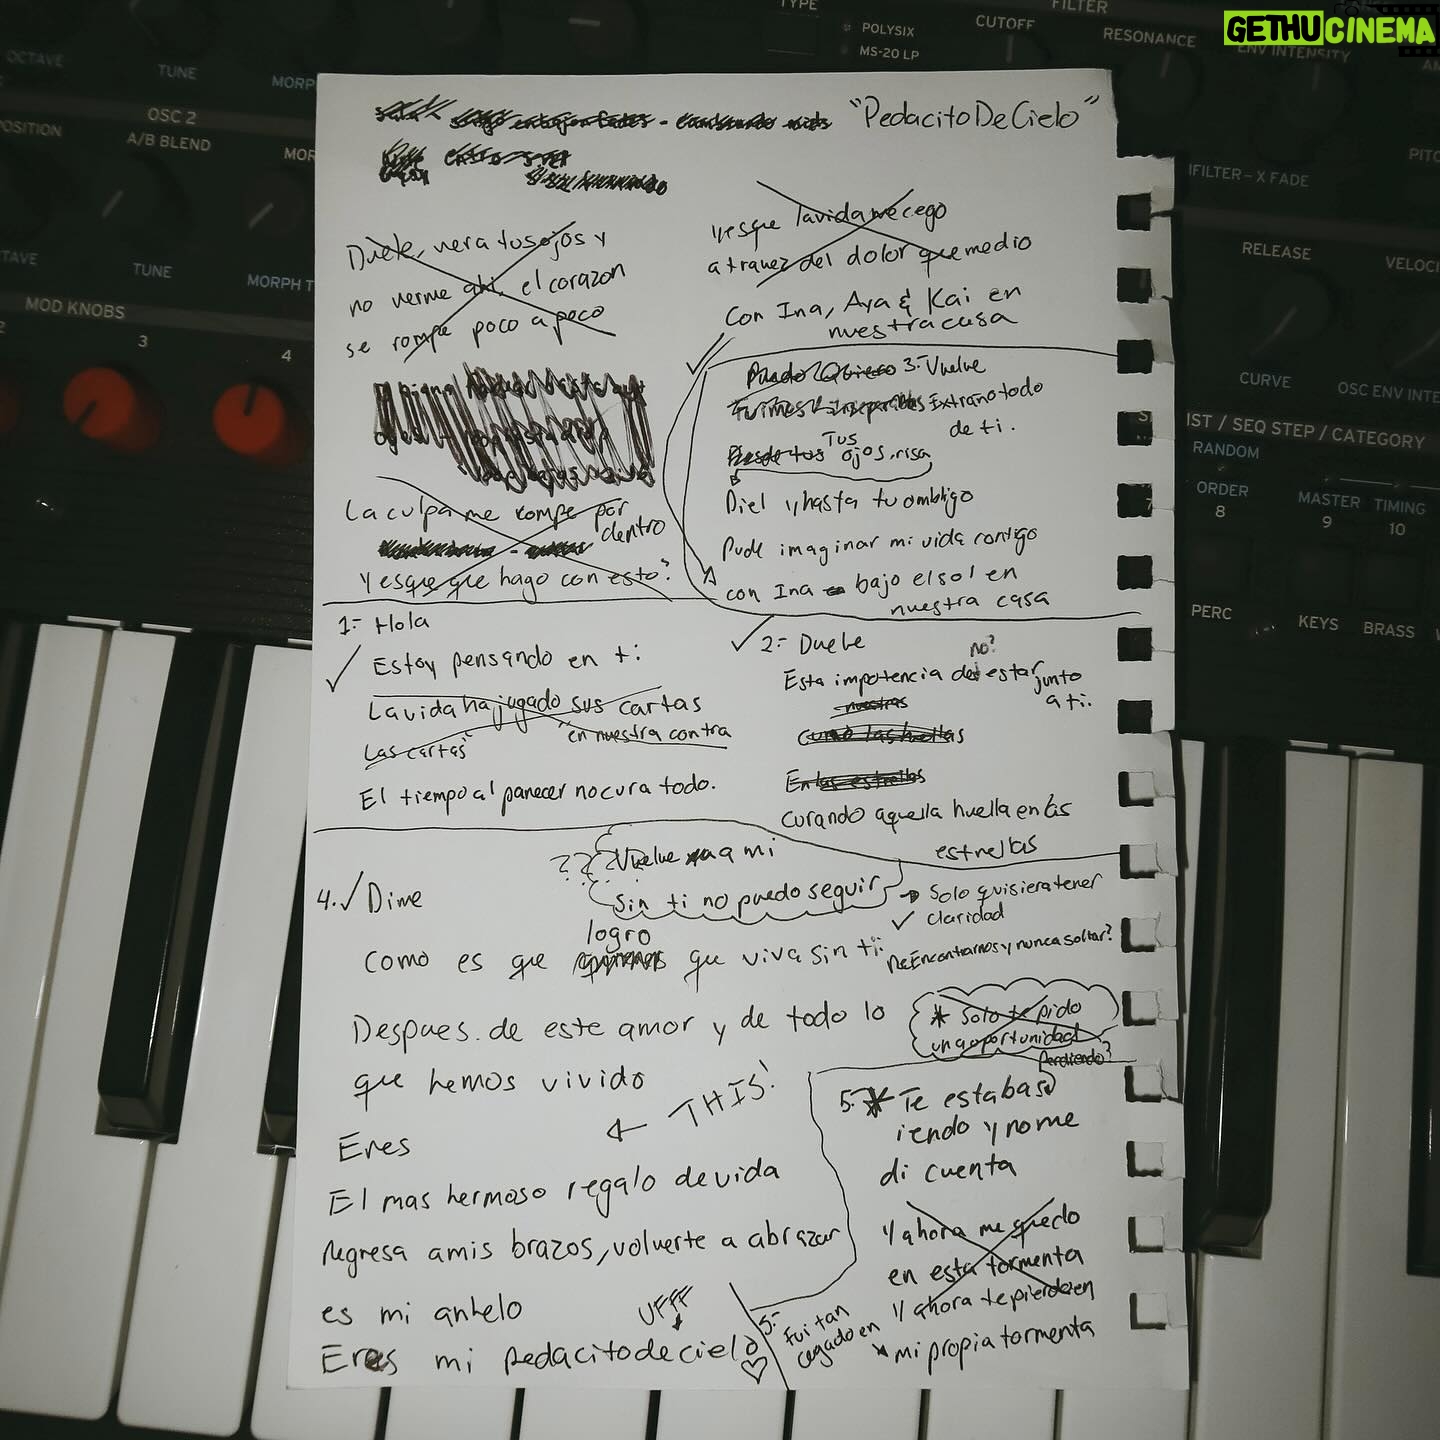 GETHUCINEMA
TYPE
POLYSIX
MS-20 LP
FILTER
CUTOFF
RESONANCE
ENV INTENSITY
OCTAVE
TUNE
MORPH
OSC 2
A/B BLEND
TUNE
MORPH T
MOD KNOBS
3
4
FILTER - X FADE
RELEASE
VELOCI
CURVE
OSC ENV INTE
IST / SEQ STEP / CATEGORY
RANDOM
ORDER
8
MASTER
9
TIMING
10
PERC
KEYS
BRASS
"PedacitoDeCielo"
Duele, ver a tus ojos y
no verme ahi, el corazon
se rompe poco a poco
La culpa me rompe por
dentro
Y es que que hago con esto?
y es que la vida me cego
a travez del dolor que me dio
Con Ina, Aya & Kai en
nuestra casa
3.- Vuelve
Extraño todo
de ti.
Tus
ojos, risa
Piel y hasta tu ombligo
Pude imaginar mi vida contigo
con Ina bajo el sol en
nuestra casa
1.- Hola
Estoy pensando en ti
La vida ha jugado sus cartas
Las cartas
"en nuestra contra
El tiempo al parecer no cura todo.
2.- Duele
no?
Esta impotencia de estar junto
a ti.
nuestras
como las huellas
En las estrellas
curando aquella huella en las
estrellas
4. Dime
??? Vuelve a mi
Sin ti no puedo seguir
logro
como es que que viva sin ti
Despues de este amor y de todo lo
que hemos vivido
Solo quisiera tener
claridad
ReEncontrarnos y nunca soltar?
* Solo te pido
una oportunidad
Perdiendo?
THIS!
Eres
El mas hermoso regalo de vida
regresa a mis brazos, volverte a abrazar
es mi anhelo
UFFF
Eres mi pedacito de cielo
5.- * Te estabas
iendo y no me
di cuenta
Y ahora me quedo
en esta tormenta
Y ahora te pierdo en
mi propia tormenta
5.- Fui tan
cegado en